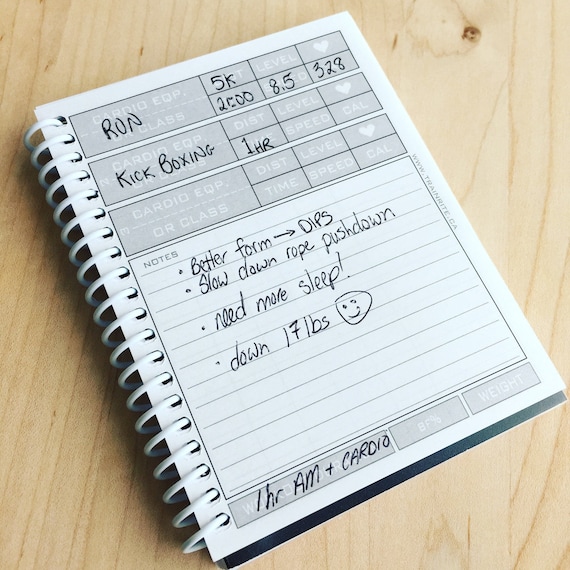 CARDIO EQP. OR CLASS RUN
DIST 5K LEVEL
TIME SPEED 8.5 328
CARDIO EQP. OR CLASS KICK BOXING
DIST 1HR LEVEL
SPEED CAL
CARDIO EQP. OR CLASS
DIST LEVEL
TIME SPEED CAL
WWW.TRAINRITE.CA
NOTES
• Better form → DIPS
• Slow down rope pushdown
• need more sleep!
• down 17 lbs
1hr AM + CARDIO
BF%
WEIGHT